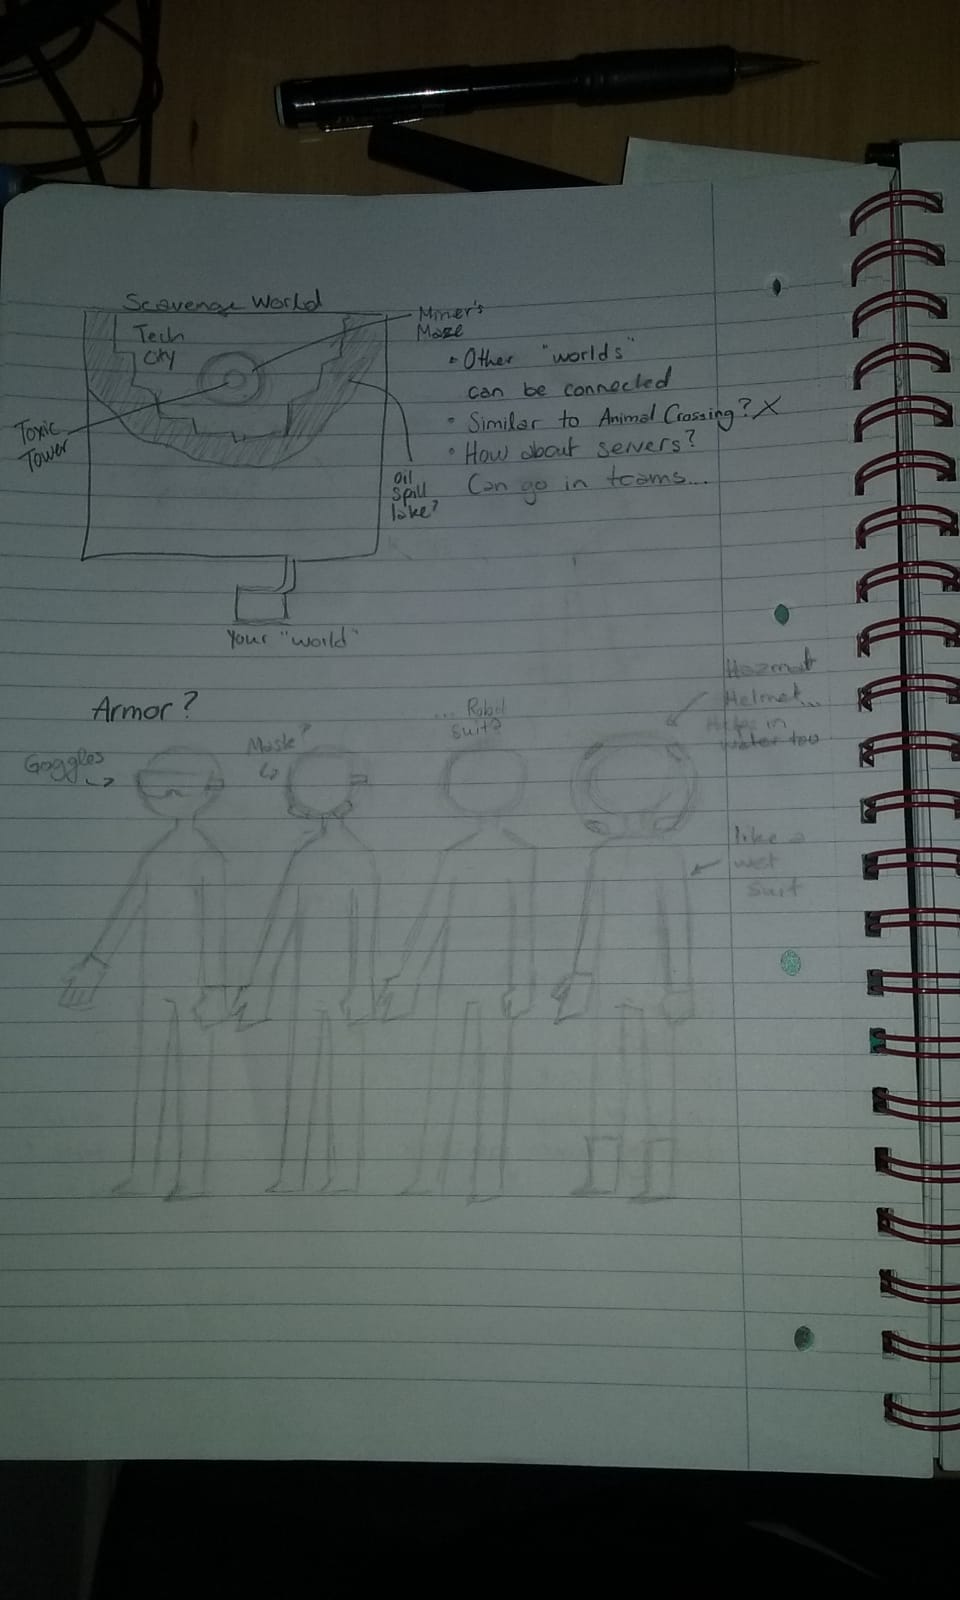 Scavenge World
Tech
City
Miner's
Maze
Toxic
Tower
Oil
Spill
lake?
• Other "worlds"
can be connected
• Similar to Animal Crossing? X
• How about servers?
Can go in teams...
Your "world"
Armor?
Goggles
Mask?
... Robot
Suit?
Hazmat
Helmet...
Helps in
water too
like a
wet
suit